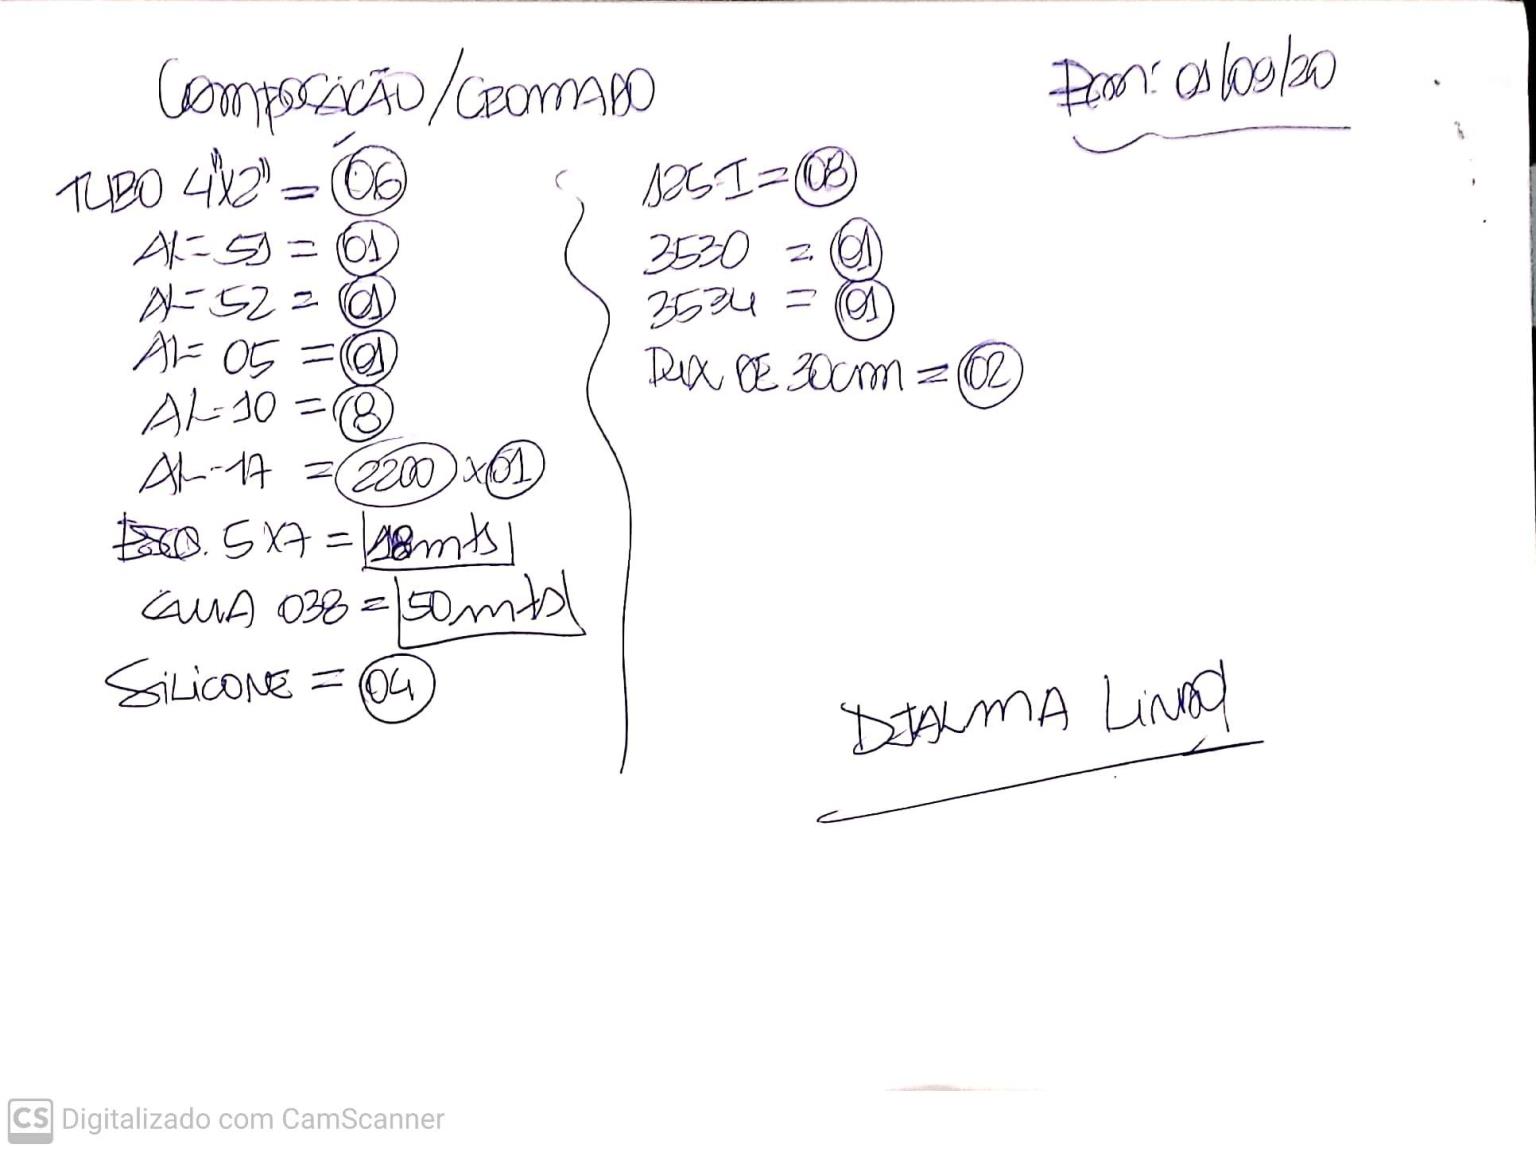 Composição/CROMADO
01/09/20
TUBO 4"X2" = 06
AL-51 = 01
AL-52 = 01
AL-05 = 01
AL-10 = 8
AL-17 = 2200 x 01
5X7 = 18mts
038 = 50mts
SILICONE = 04
125-I = 08
3530 = 01
3534 = 01
DE 30cm = 02
DJALMA
CS Digitalizado com CamScanner